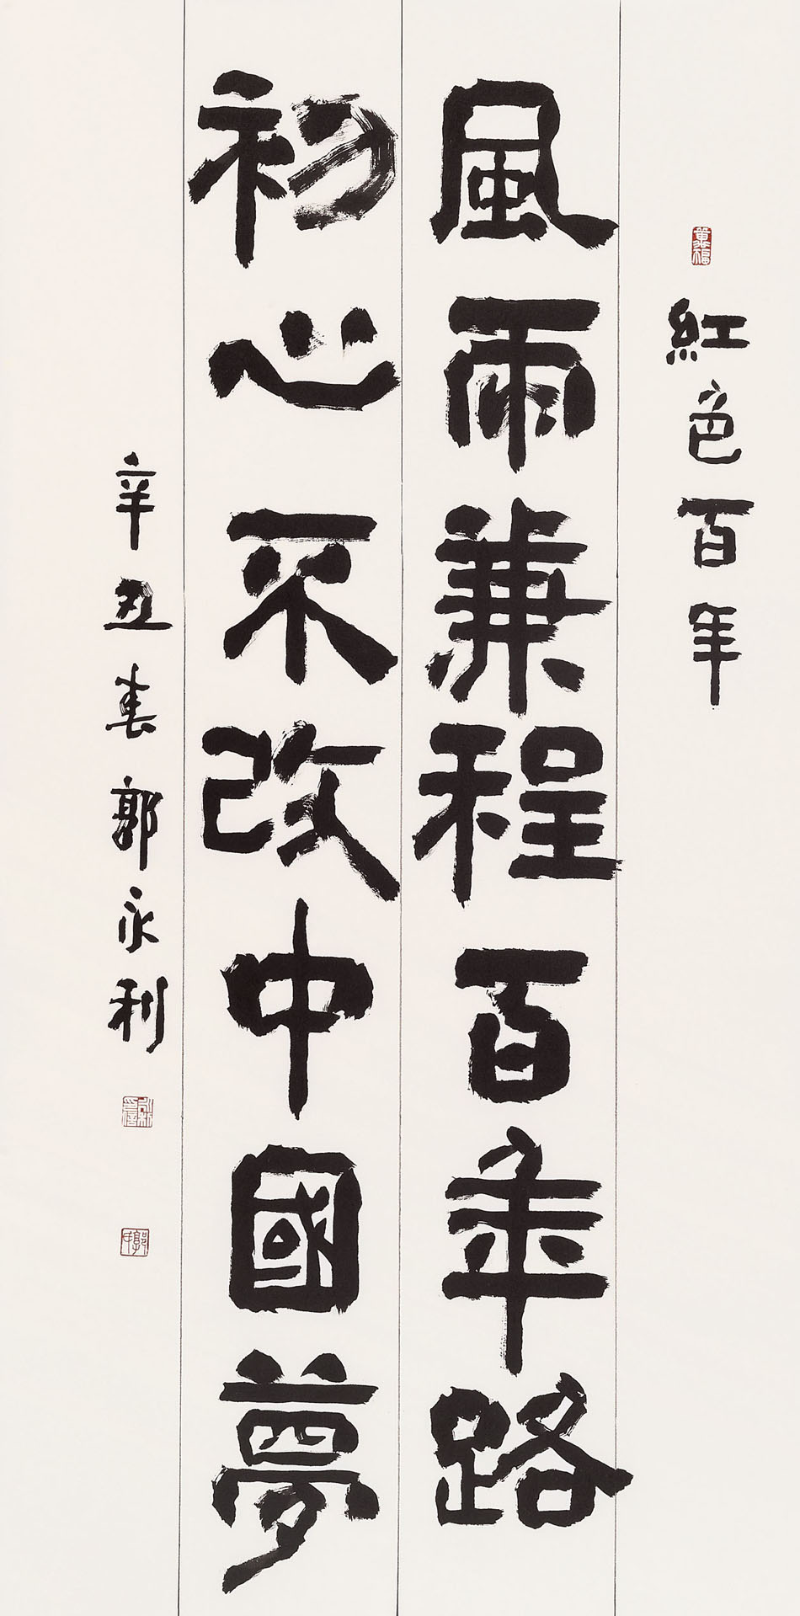 紅色百年
風雨兼程百年路
初心不改中國夢
辛丑春郭永利